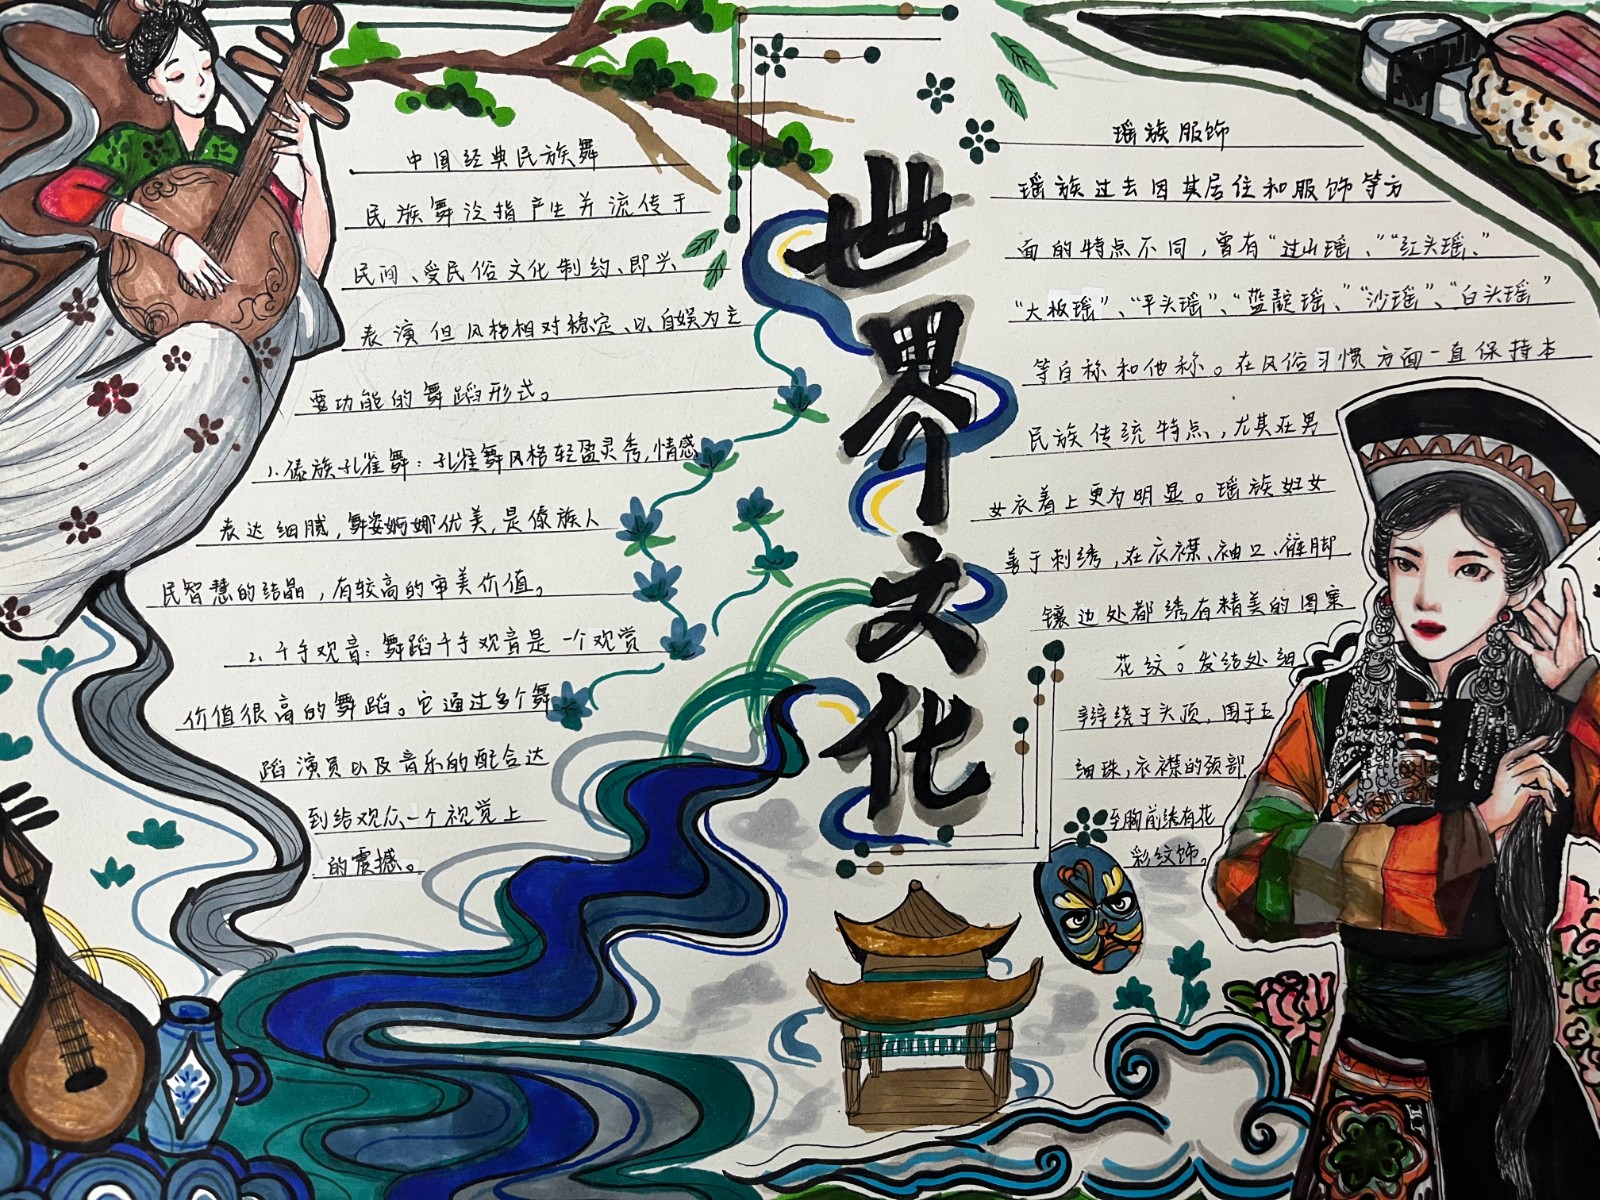 中国经典民族舞
民族舞泛指产生并流传于
民间、受民俗文化制约、即兴
表演但风格相对稳定、以自娱为主
要功能的舞蹈形式。
1.傣族孔雀舞：孔雀舞风格轻盈灵秀,情感
表达细腻,舞姿婀娜优美,是傣族人
民智慧的结晶，有较高的审美价值。
2.千手观音：舞蹈千手观音是一个观赏
价值很高的舞蹈。它通过多个舞
蹈演员以及音乐的配合达
到给观众一个视觉上
的震撼。
世界文化
瑶族服饰
瑶族过去因其居住和服饰等方
面的特点不同，曾有“过山瑶、”“红头瑶、”
“大板瑶”、“平头瑶”、“蓝靛瑶、”“沙瑶”、“白头瑶”
等自称和他称。在风俗习惯方面一直保持本
民族传统特点，尤其在男
女衣着上更为明显。瑶族妇女
善于刺绣，在衣襟、袖口、裤脚
镶边处都绣有精美的图案
花纹。发结处细
辫绕于头顶，围于五
细珠，衣襟的颈部
至胸前绣有花
彩纹饰。